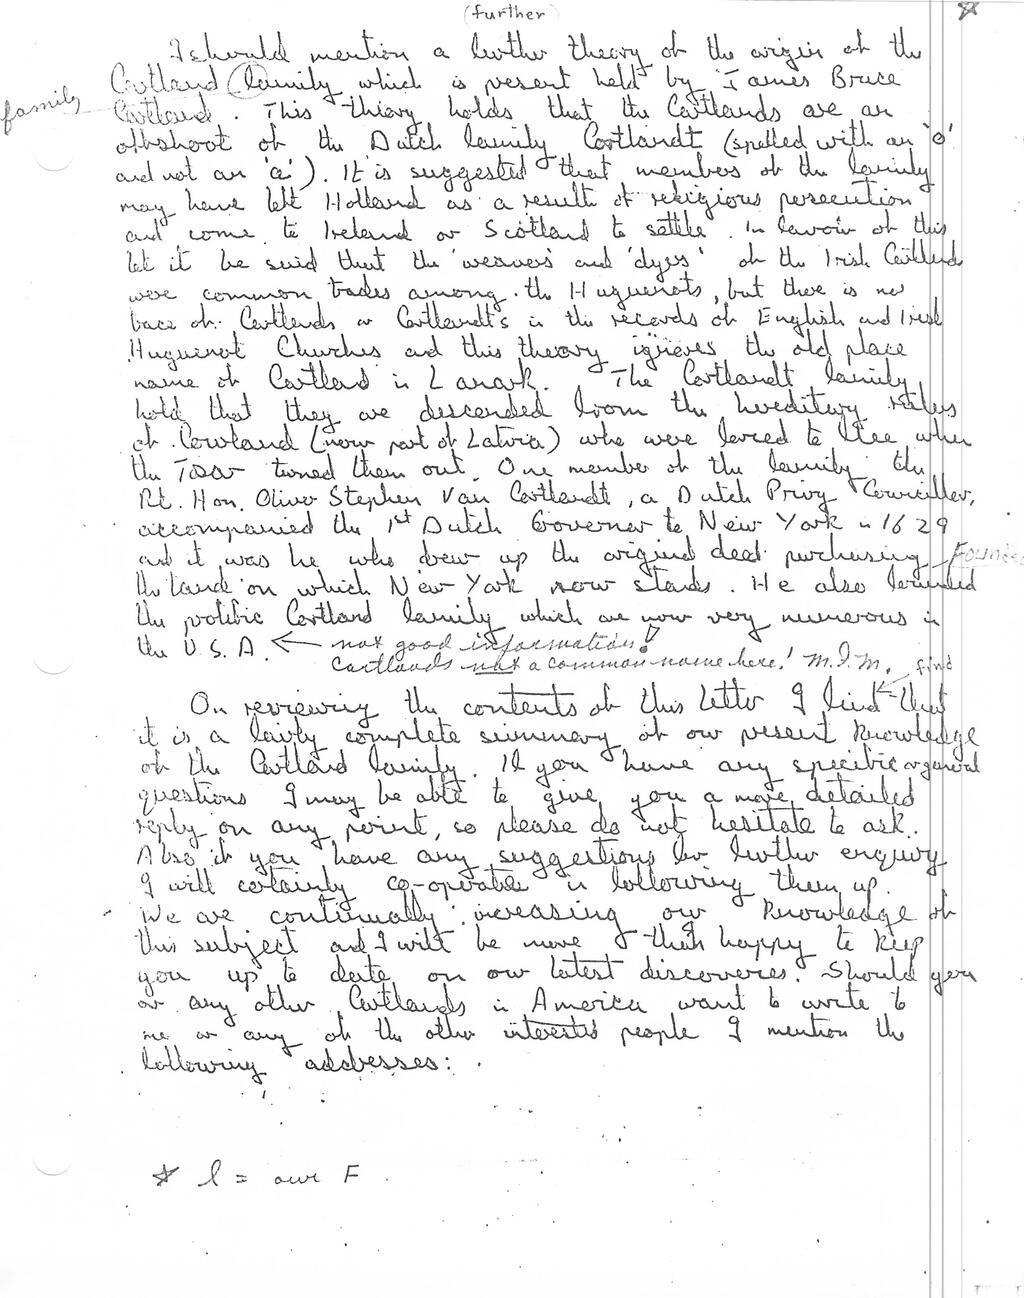 (further)
☆
I should mention a further theory of the origin of the
Cartland family which is present held by James Bruce
family
Cartland. This theory holds that the Cartlands are an
offshoot of the Dutch family Cortlandt (spelled with an 'o'
and not an 'a'). It is suggested that members of the family
may have left Holland as a result of religious persecution
and come to Ireland or Scotland to settle. In favour of this
let it be said that the 'weavers' and 'dyers' of the Irish Cartlands
were common trades among the Huguenots, but there is no
trace of Cartlands or Cortlandt's in the records of English and Irish
Huguenot Churches and this theory ignores the old place
name of Cartland in Lanark. The Cortlandt family
hold that they are descended from the hereditary rulers
of Courland (now part of Latvia) who were forced to flee when
the Tsar turned them out. One member of the family the
Rt. Hon. Oliver Stephen Van Cortlandt, a Dutch Privy Councillor,
accompanied the 1st Dutch Governor to New York in 1629
and it was he who drew up the original deed purchasing
Founded
the land on which New York now stands. He also founded
the prolific Cortland family which are now very numerous in
the U.S.A. ← not good information!
Cartlands not a common name here! M.I.M.
find
On reviewing the contents of this letter I find that
it is a fairly complete summary of our present knowledge
of the Cartland family. If you have any specific or general
questions I may be able to give you a more detailed
reply on any point, so please do not hesitate to ask.
Also if you have any suggestions for further enquiry
I will certainly co-operate in following them up.
We are continually increasing our knowledge of
this subject and I will be more than happy to keep
you up to date on our latest discoveries. Should you
or any other Cartlands in America want to write to
me or any of the other interested people I mention the
following addresses:
☆ l = our F